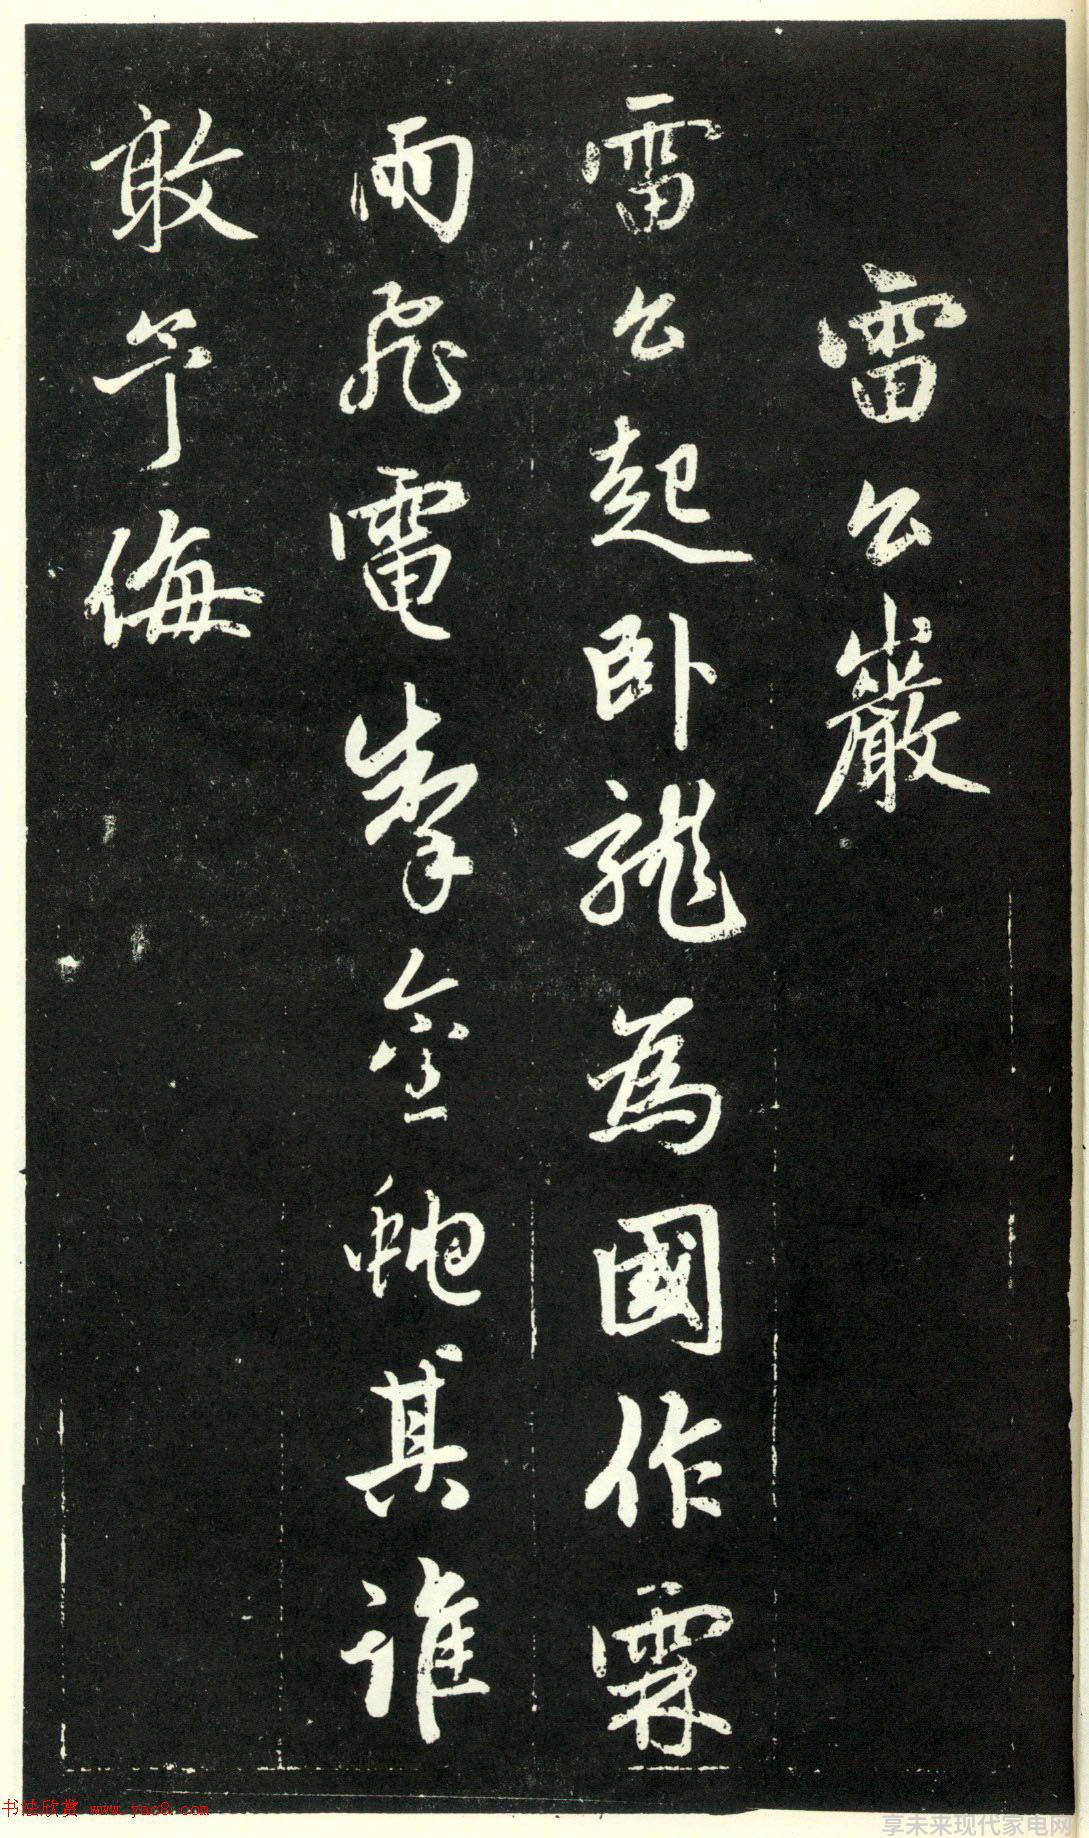 雷公巖
雷公起卧龍為國作霖
雨飛電掣金虵其誰
敢予侮
书法欣赏 www.yac8.com
享未来现代家电网